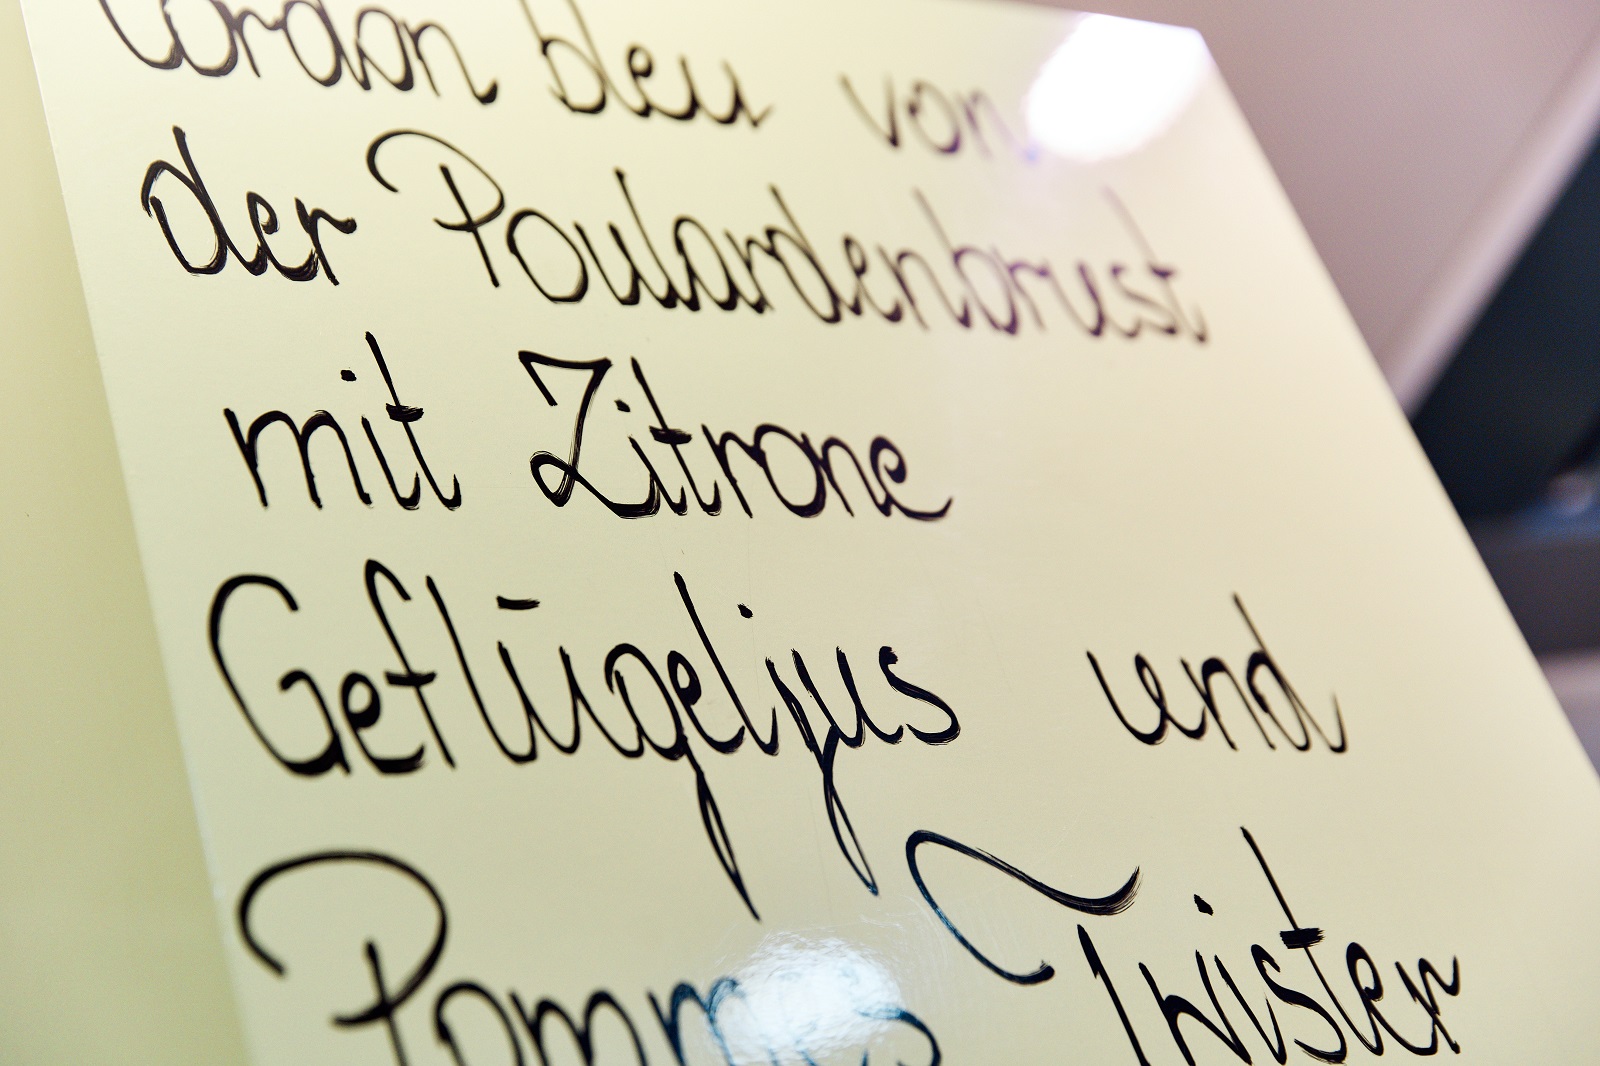 Cordon bleu von
der Poulardenbrust
mit Zitrone
Geflügeljus und
Pommes Twister